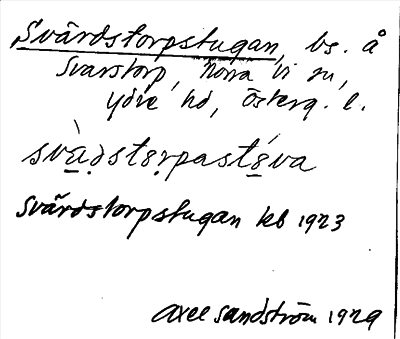 Svärdstorpstugan, bs. å
Svarstorp, Norra Vi sn,
Ydre hd, Österg. l.
svàdstơrpastǿva
Svärdstorpstugan kb 1923
Axel Sandström 1929